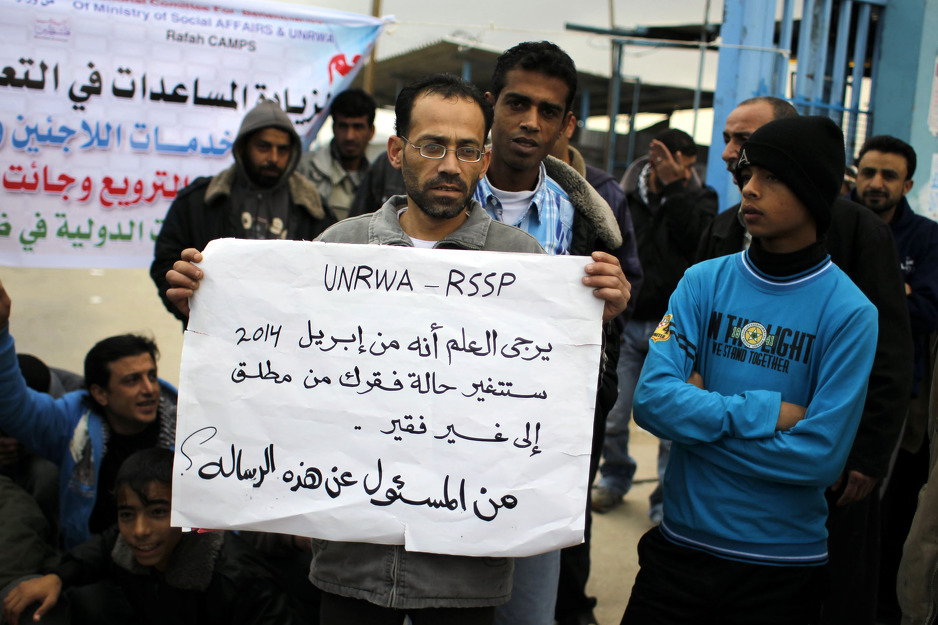 Of Ministry of Social AFFAIRS & UNRWA
Rafah CAMPS
لزيادة المساعدات في
خدمات اللاجئين
الترويع وجائت
الدولية في
UNRWA - RSSP
يرجى العلم أنه من إبريل 2014
ستتغير حالة فقرك من مطلق
إلى غير فقير .
من المسئول عن هذه الرساله ؟
IN THE LIGHT
WE STAND TOGETHER